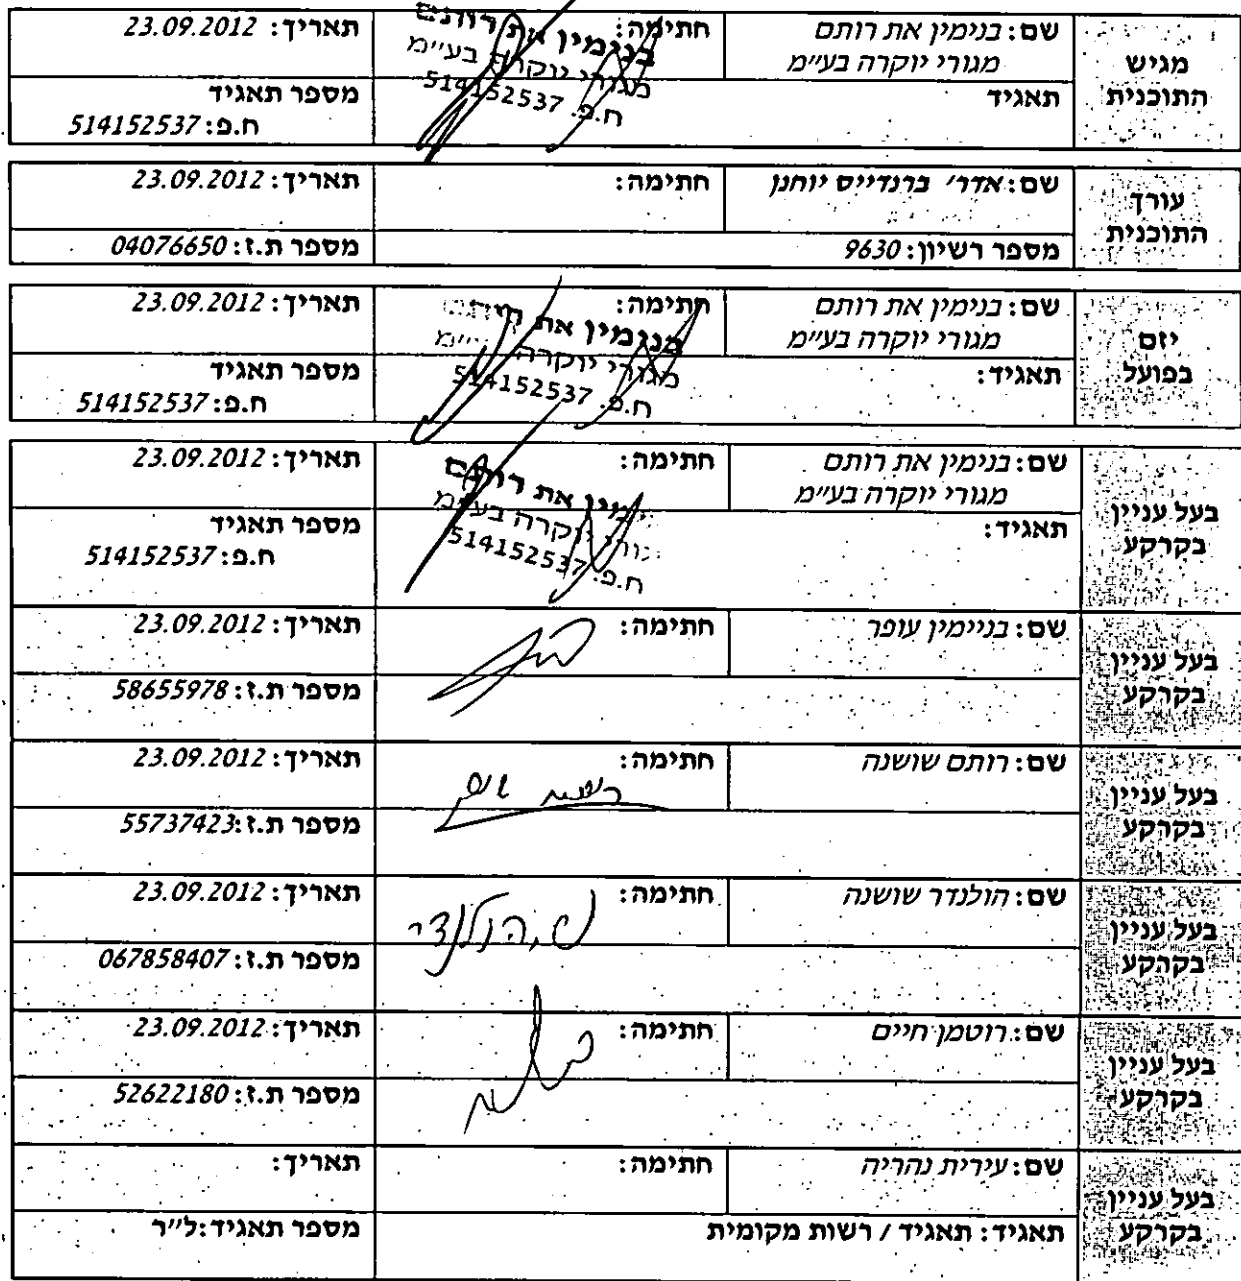 מגיש
התוכנית
שם: בנימין את רותם
מגורי יוקרה בע״מ
חתימה:
בנימין את רותם
מגורי יוקרה בע״מ
ח.פ. 514152537
תאריך: 23.09.2012
תאגיד
מספר תאגיד
ח.פ: 514152537
עורך
התוכנית
שם: אדר׳ ברנדייס יוחנן
חתימה:
תאריך: 23.09.2012
מספר רשיון: 9630
מספר ת.ז: 04076650
יזם
בפועל
שם: בנימין את רותם
מגורי יוקרה בע״מ
חתימה:
בנימין את רותם
מגורי יוקרה
ח.פ. 514152537
תאריך: 23.09.2012
תאגיד:
מספר תאגיד
ח.פ: 514152537
בעל עניין
בקרקע
שם: בנימין את רותם
מגורי יוקרה בע״מ
חתימה:
את רותם
יוקרה בע״מ
ח.פ. 514152537
תאריך: 23.09.2012
תאגיד:
מספר תאגיד
ח.פ: 514152537
בעל עניין
בקרקע
שם: בניימין עופר
חתימה:
תאריך: 23.09.2012
מספר ת.ז: 58655978
בעל עניין
בקרקע
שם: רותם שושנה
חתימה:
תאריך: 23.09.2012
מספר ת.ז: 55737423
בעל עניין
בקרקע
שם: הולנדר שושנה
חתימה: ש. הולנדר
תאריך: 23.09.2012
מספר ת.ז: 067858407
בעל עניין
בקרקע
שם: רוטמן חיים
חתימה:
תאריך: 23.09.2012
מספר ת.ז: 52622180
בעל עניין
בקרקע
שם: עירית נהריה
חתימה:
תאריך:
תאגיד: תאגיד / רשות מקומית
מספר תאגיד: ל״ר